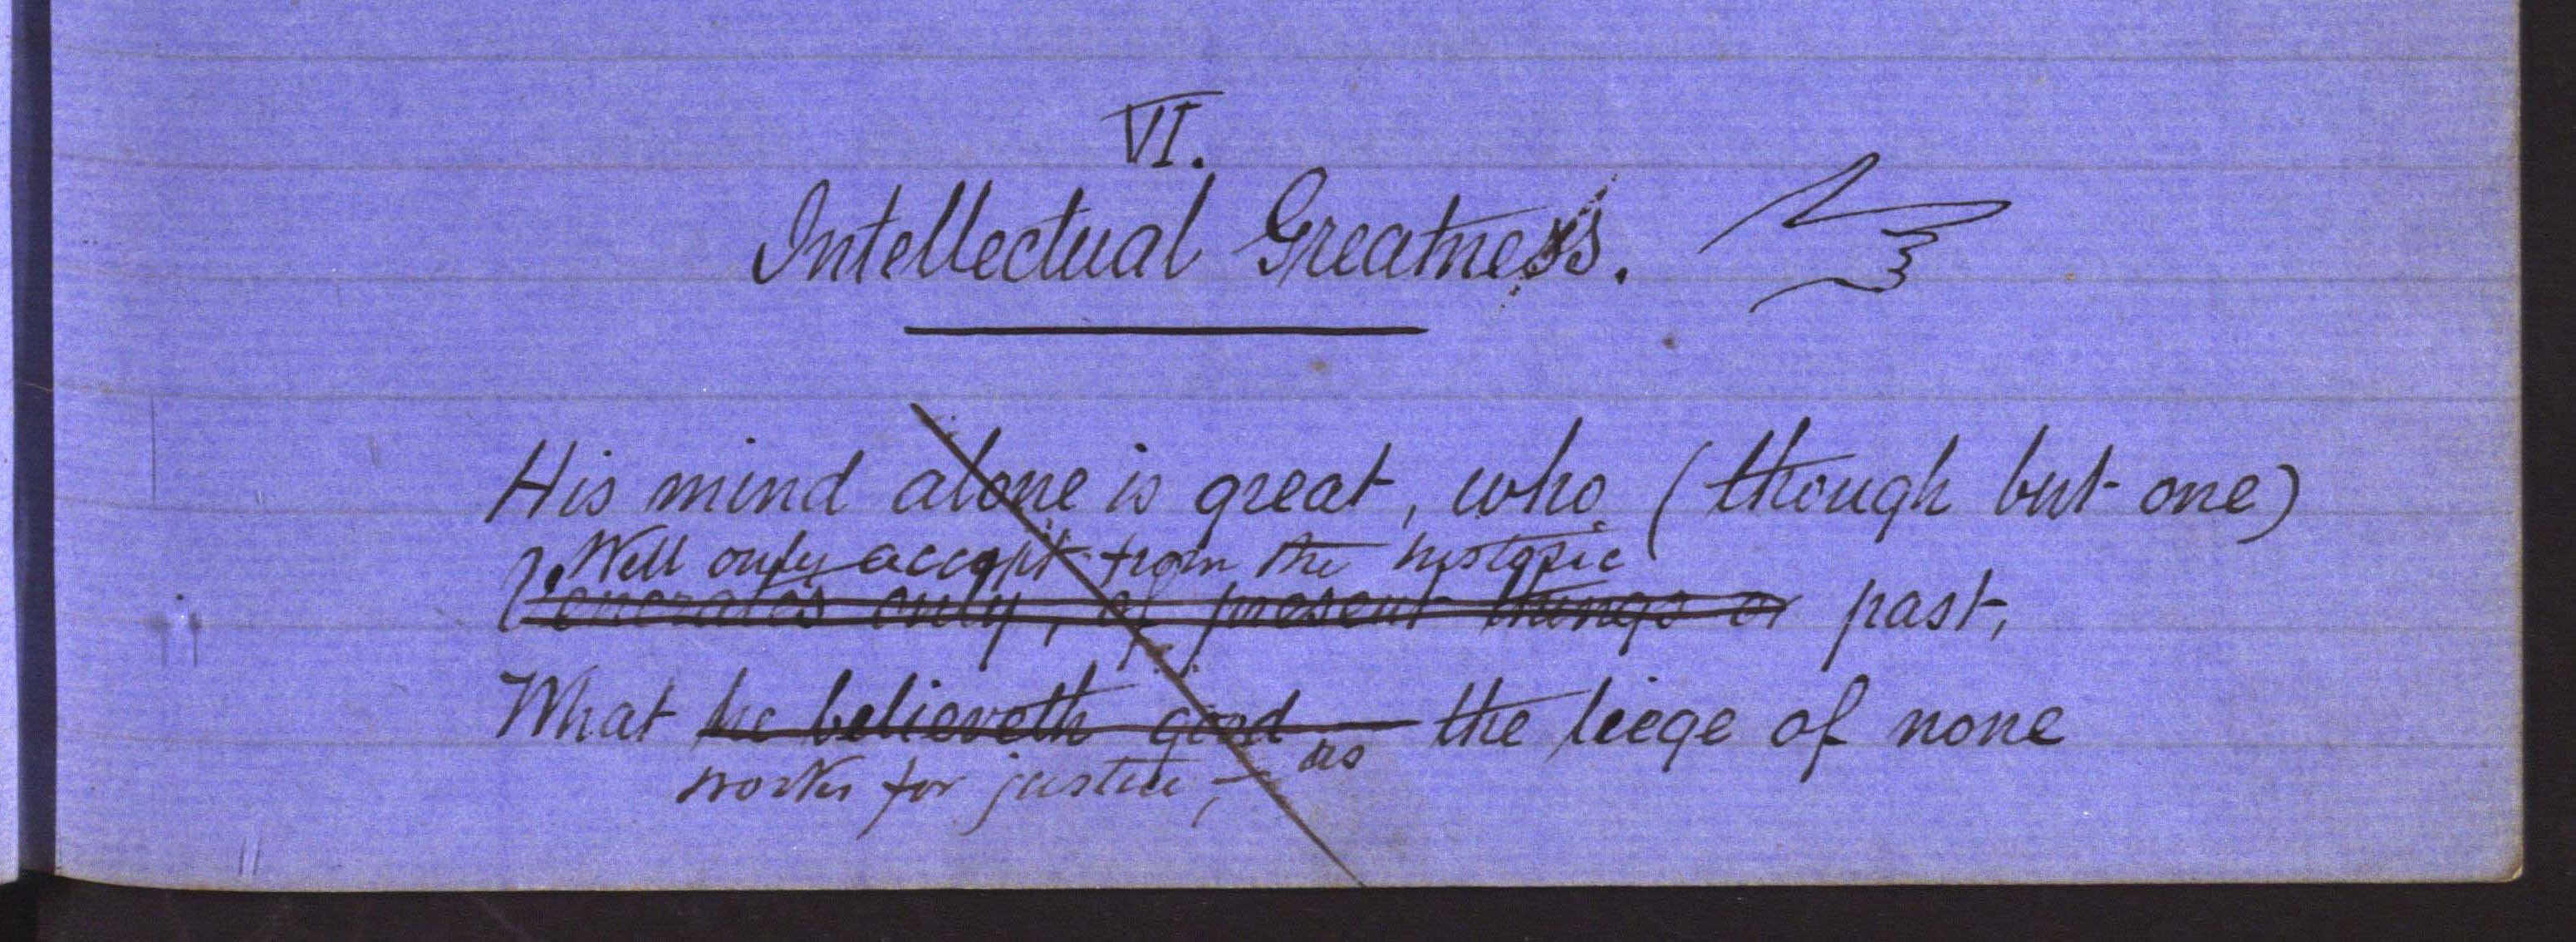 VI.
Intellectual Greatness.
His mind alone is great, who (though but one)
Will only accept from the historic
Venerates only, of present things or past,
What he believeth good — the liege of none
works for justice, — as